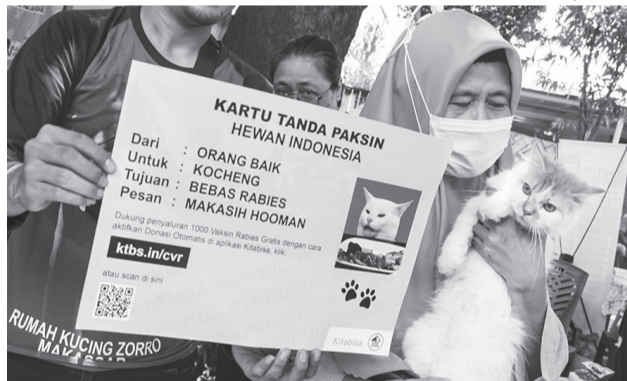 KARTU TANDA PAKSIN
HEWAN INDONESIA
Dari : ORANG BAIK
Untuk : KOCHENG
Tujuan : BEBAS RABIES
Pesan : MAKASIH HOOMAN
Dukung penyaluran 1000 Vaksin Rabies Gratis dengan cara
aktifkan Donasi Otomatis di aplikasi Kitabisa, klik:
ktbs.in/cvr
atau scan di sini
Kitabisa
RUMAH KUCING ZORRO
MAKASSAR